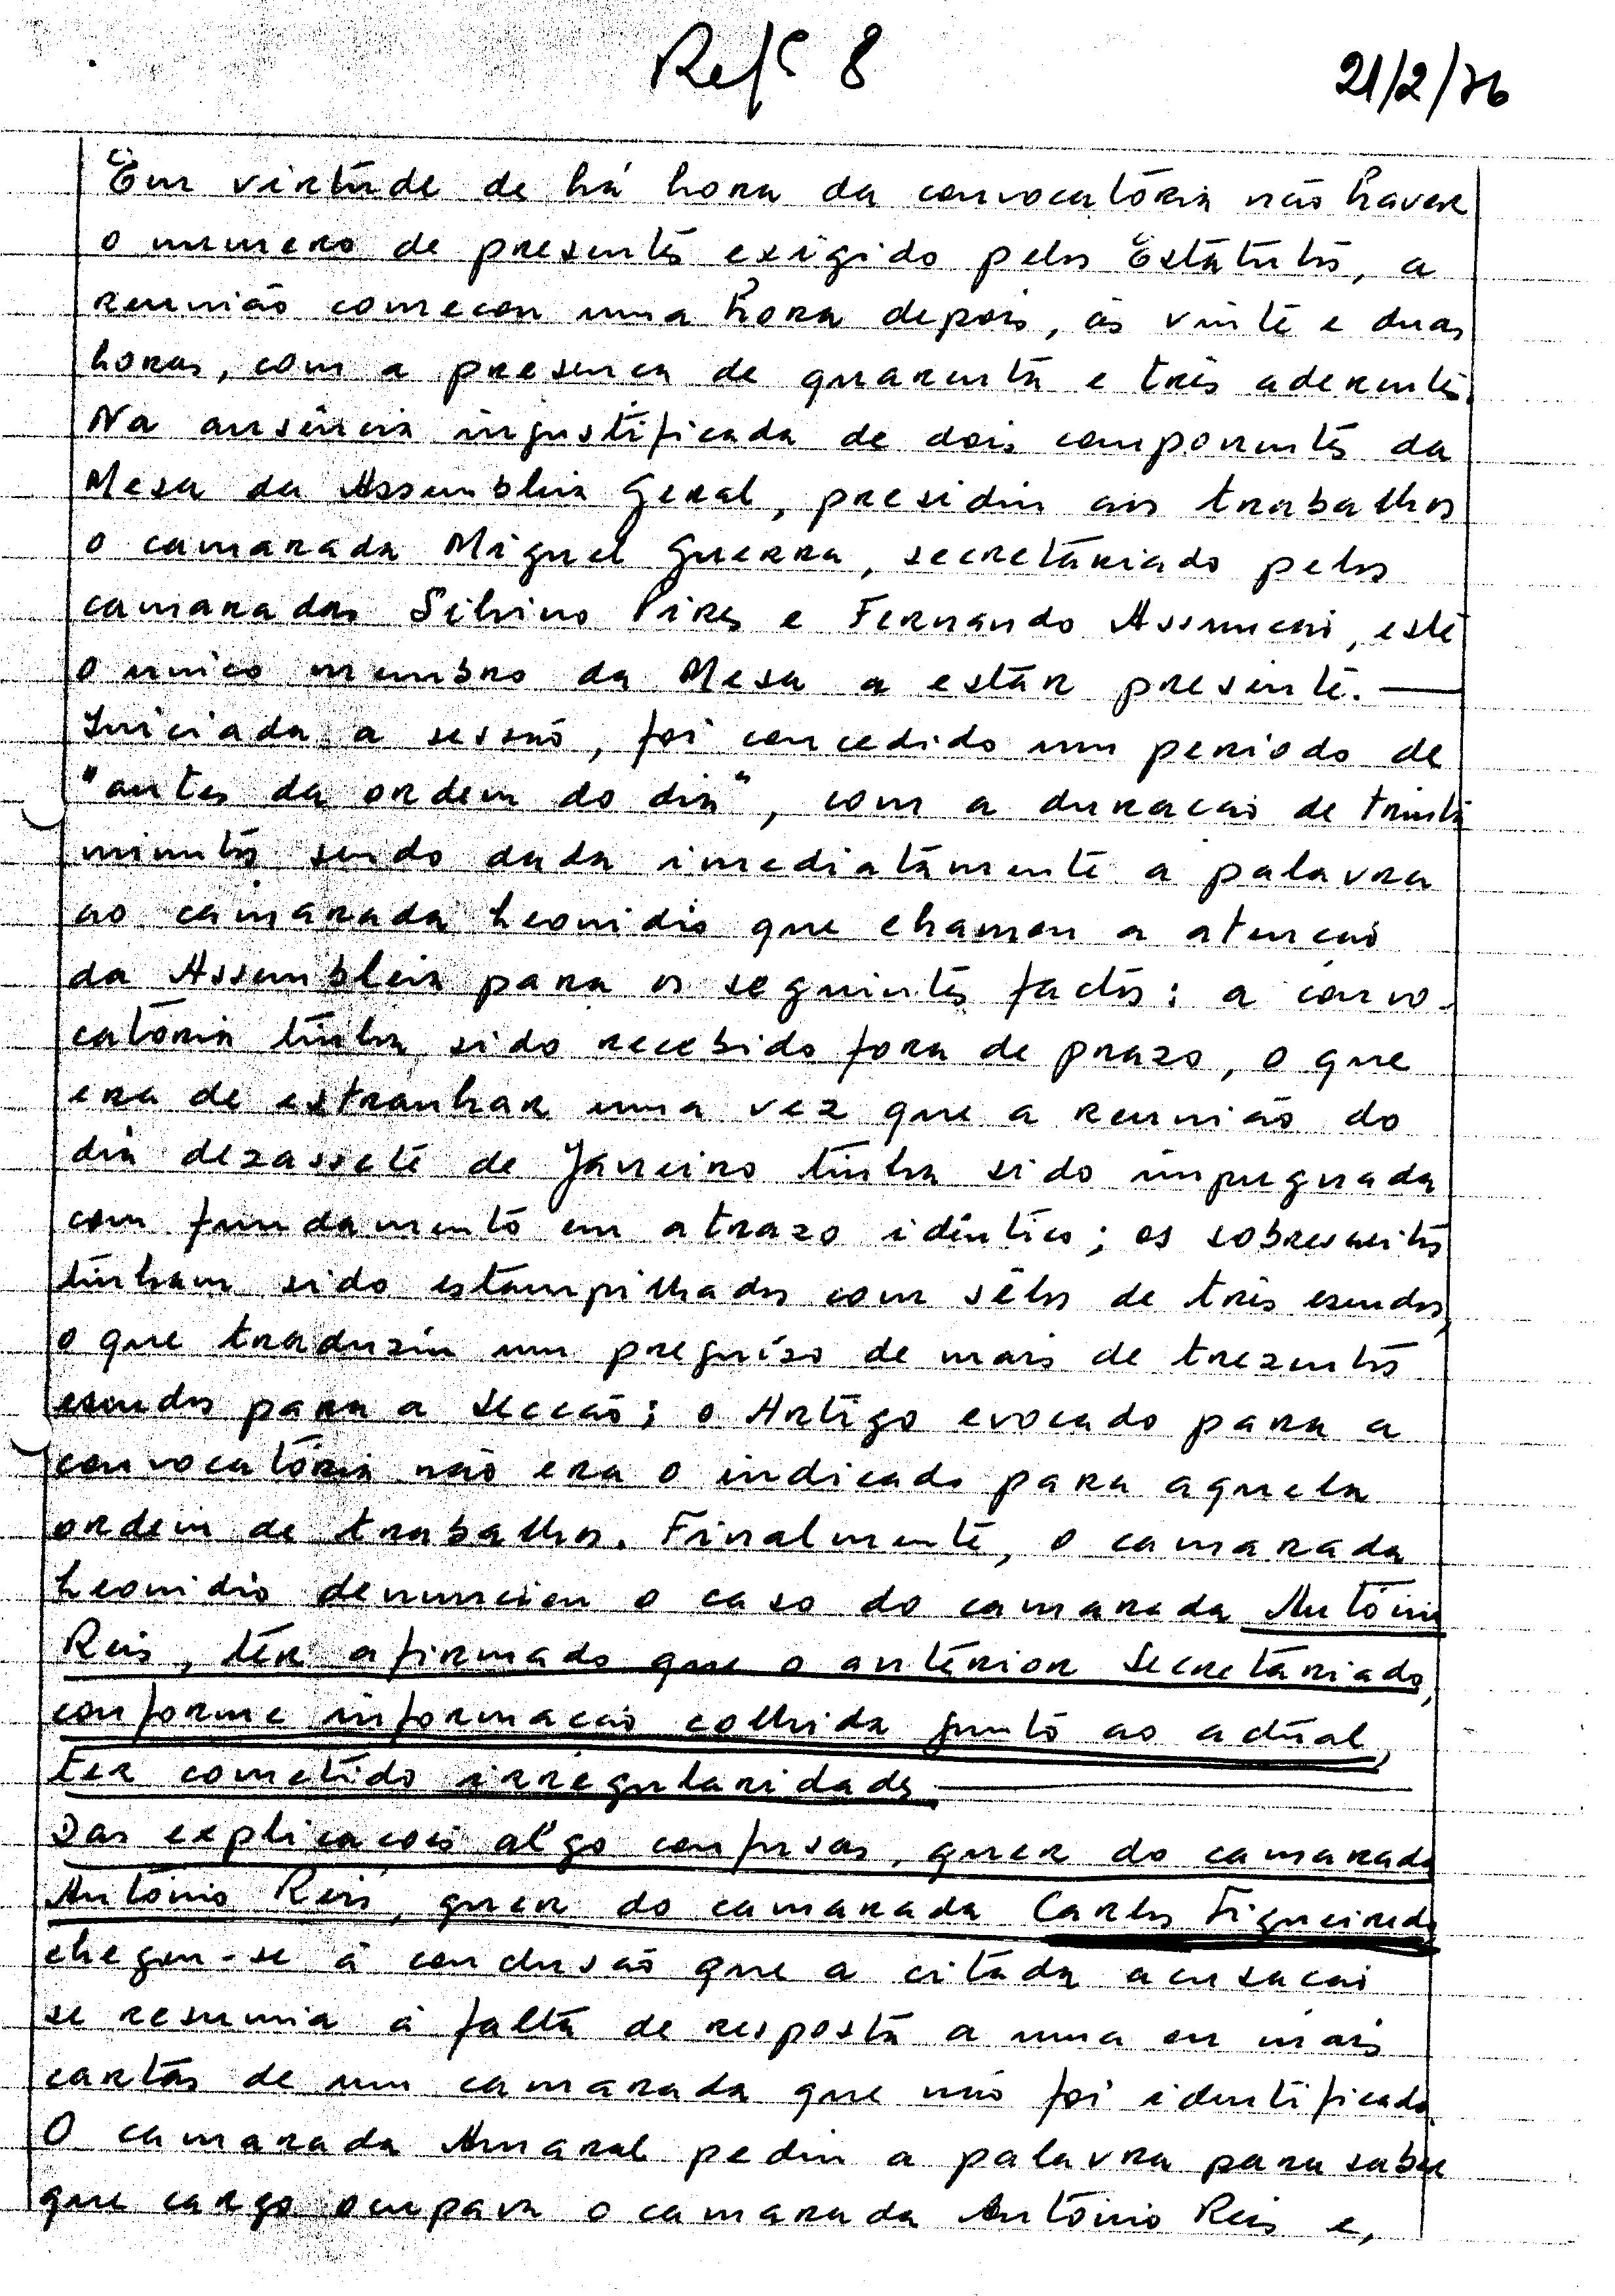 Refª 8
21/2/76
Em virtude de há hora da convocatória não haver
o numero de presentes exigido pelos Estatutos, a
reunião começou uma hora depois, às vinte e duas
horas, com a presença de quarenta e três aderentes.
Na ausência injustificada de dois componentes da
Mesa da Assembleia Geral, presidiu aos trabalhos
o camarada Miguel Guerra, secretariado pelos
camaradas Silvino Pires e Fernando Assunção, este
o unico membro da Mesa a estar presente. —
Iniciada a sessão, foi concedido um periodo de
"antes da ordem do dia", com a duração de trinta
minutos sendo dada imediatamente a palavra
ao camarada Leonidio que chamou a atenção
da Assembleia para os seguintes factos: a convo-
catória tinha sido recebido fora de prazo, o que
era de estranhar uma vez que a reunião do
dia dezassete de Janeiro tinha sido impugnada
com fundamento em atrazo idêntico; os sobrescritos
tinham sido estampilhados com sêlos de três escudos,
o que traduzia um preguizo de mais de trezentos
escudos para a secção; o Artigo evocado para a
convocatória não era o indicado para aquela
ordem de trabalhos. Finalmente, o camarada
Leonidio denunciou o caso do camarada António
Reis, ter afirmado que o anterior Secretariado,
conforme informação colhida junto ao actual,
ter cometido irregularidades —
Das explicações algo confusas, quer do camarada
António Reis, quer do camarada Carlos Figueiredo
chegou-se à conclusão que a citada acusação
se resumia à falta de resposta a uma ou mais
cartas de um camarada que não foi identificado.
O camarada Amaral pediu a palavra para saber
que cargo ocupava o camarada António Reis e,